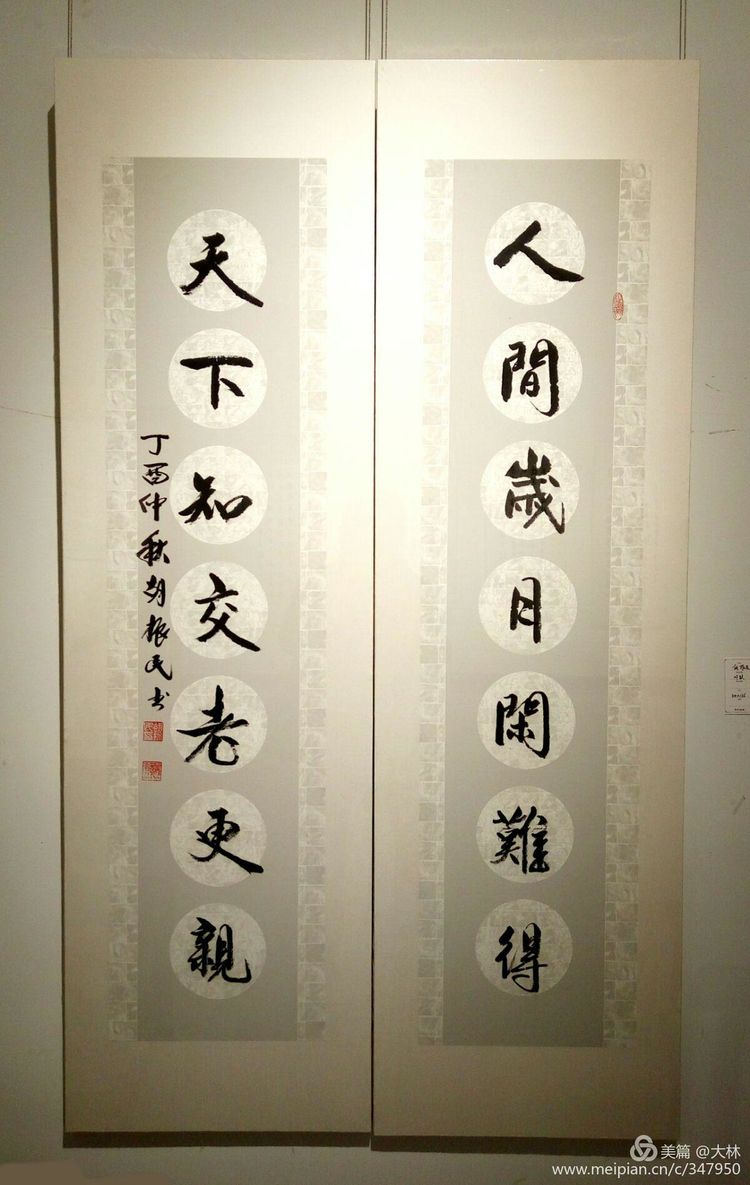 人間歲月閑難得
天下知交老更親
丁酉仲秋胡振民书
美篇 @大林
www.meipian.cn/c/347950